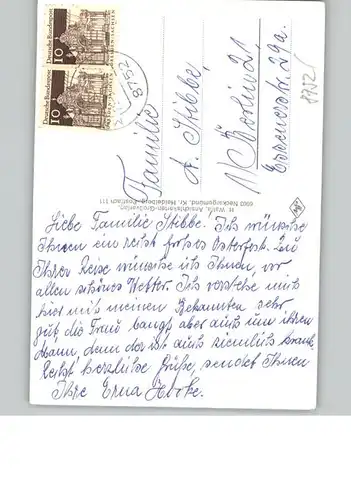 Deutsche Bundespost
10
Deutsche Bundespost
10
8752
8752
Familie
A. Stibbe,
1/ Berlin 21
29a.
H. Wolf's Ansichtskarten-Großverlag
6903 Neckargemünd, Kr. Heidelberg, Postfach 111
Liebe Familie Stibbe. Ich wünsche
Ihnen ein recht frohes Osterfest. Zur
Ihren Reise wünsche ich Ihnen, vor
allen schönes Wetter. Ich verstehe mich
hier mit meinen Bekannten sehr
gut die Frau bangt aber auch um ihren
Mann, denn der ist auch ziemlich krank.
Recht herzliche Grüße, sendet Ihnen
Ihre Erna